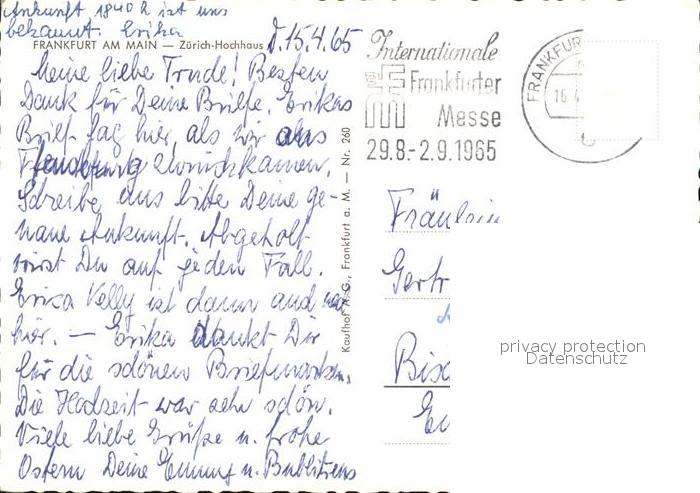 Ankunft 1840 h ist uns
bekannt. Erika
FRANKFURT AM MAIN — Zürich-Hochhaus
d. 15.4.65
Meine liebe Trude! Besten
Dank für Deine Briefe. Erikas
Brief lag hier, als wir aus
Flensburg zurückkamen.
Schreibe uns bitte Deine ge-
naue Ankunft. Abgeholt
wirst Du auf jeden Fall.
Erica Kelly ist dann auch
hier. — Erika dankt Dir
für die schönen Briefmarken.
Die Hochzeit war sehr schön.
Viele liebe Grüße u. frohe
Ostern Deine Emmy u. Bublitzens
Kaufhof A.G., Frankfurt a. M. — Nr. 260
Internationale
Frankfurter
Messe
29.8.-2.9.1965
FRANKFUR
16.4
Fräulein
Gertr
Bisc
privacy protection
Datenschutz